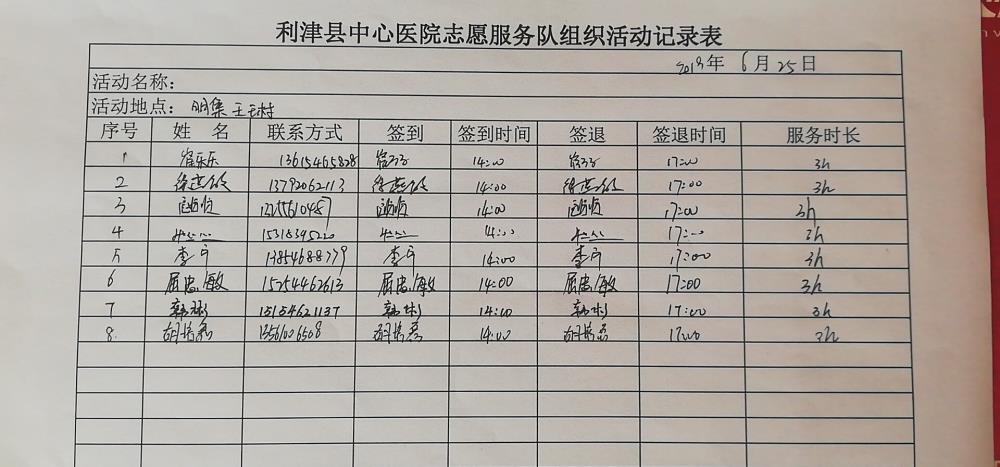 利津县中心医院志愿服务队组织活动记录表
2019年 6月25日
活动名称:
活动地点: 明集王毛村
序号 姓 名 联系方式 签到 签到时间 签退 签退时间 服务时长
1 崔乐乐 13615465828 14:00 17:00 3h
2 13792062113 14:00 17:00 3h
3 14:00 17:00 3h
4 15315395220 14:00 17:00 3h
5 李宁 13854688779 李宁 14:00 李宁 17:00 3h
6 屈忠敏 15254462613 屈忠敏 14:00 屈忠敏 17:00 3h
7 韩彬 15154621137 韩彬 14:00 韩彬 17:00 3h
8. 13561006508 14:00 17:00 3h